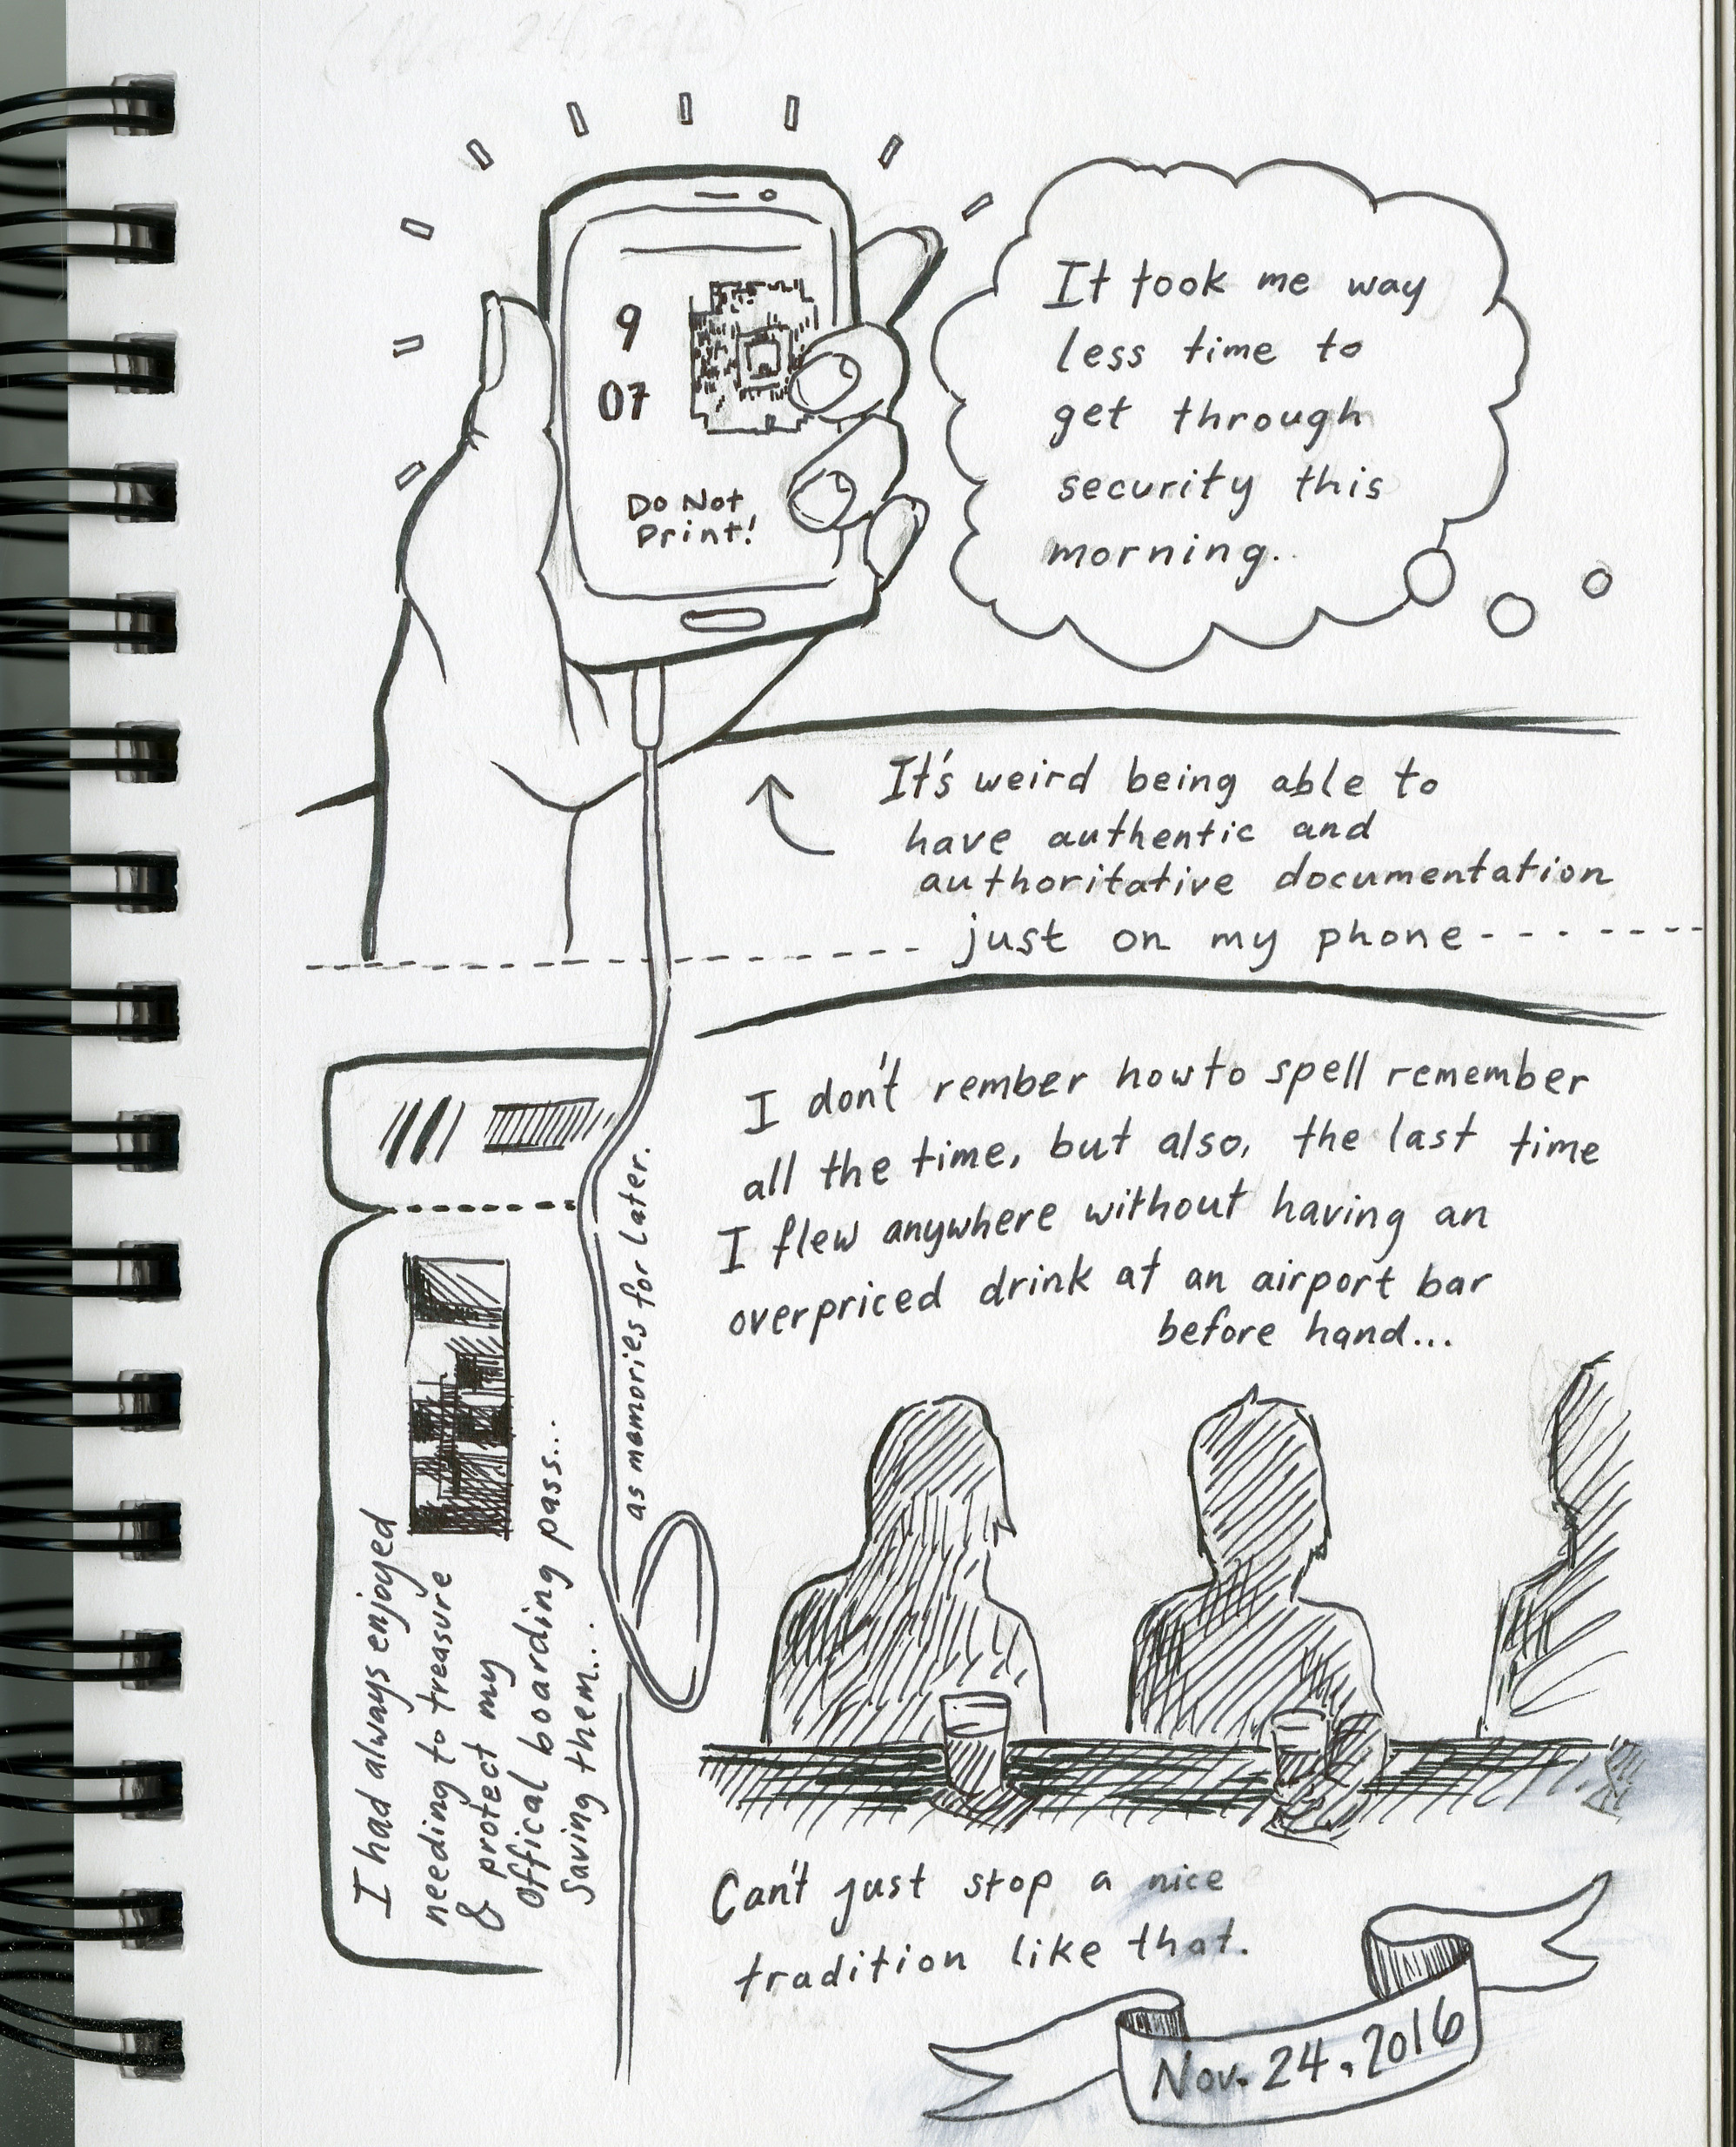 9
07
Do Not
Print!
It took me way
less time to
get through
security this
morning..
It's weird being able to
have authentic and
authoritative documentation
just on my phone
I don't rember how to spell remember
all the time, but also, the last time
I flew anywhere without having an
overpriced drink at an airport bar
before hand...
I had always enjoyed
needing to treasure
& protect my
offical boarding pass...
Saving them...
as memories for later.
Can't just stop a nice
tradition like that.
Nov. 24, 2016